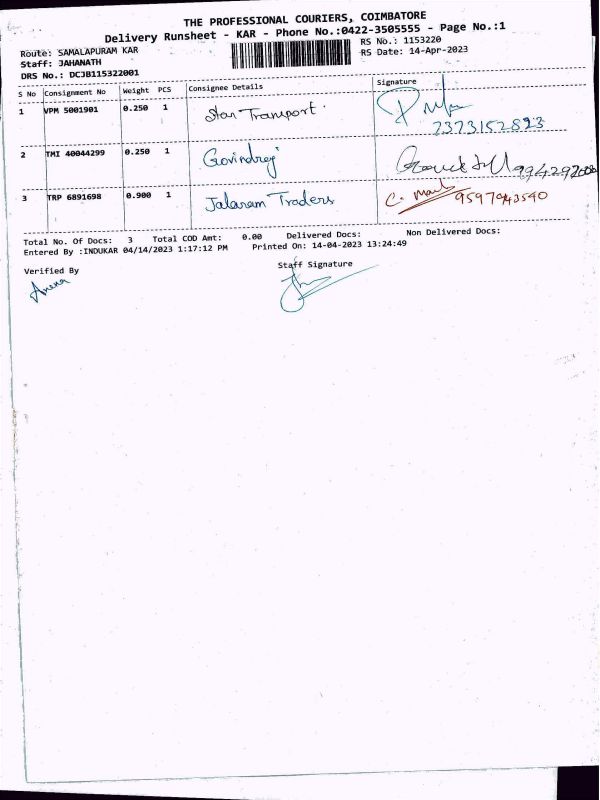 THE PROFESSIONAL COURIERS, COIMBATORE
Delivery Runsheet - KAR - Phone No.:0422-3505555 - Page No.:1
Route: SAMALAPURAM KAR RS No.: 1153220
Staff: JAHANATH RS Date: 14-Apr-2023
DRS No.: DCJB115322001
S No Consignment No Weight PCS Consignee Details Signature
1 VPM 5001901 0.250 1 Star Transport
7373152823
2 TMI 40044299 0.250 1 Govindraj
3 TRP 6891698 0.900 1 Jalaram Traders C. 9597943540
Total No. Of Docs: 3 Total COD Amt: 0.00 Delivered Docs: Non Delivered Docs:
Entered By :INDUKAR 04/14/2023 1:17:12 PM Printed On: 14-04-2023 13:24:49
Verified By Staff Signature